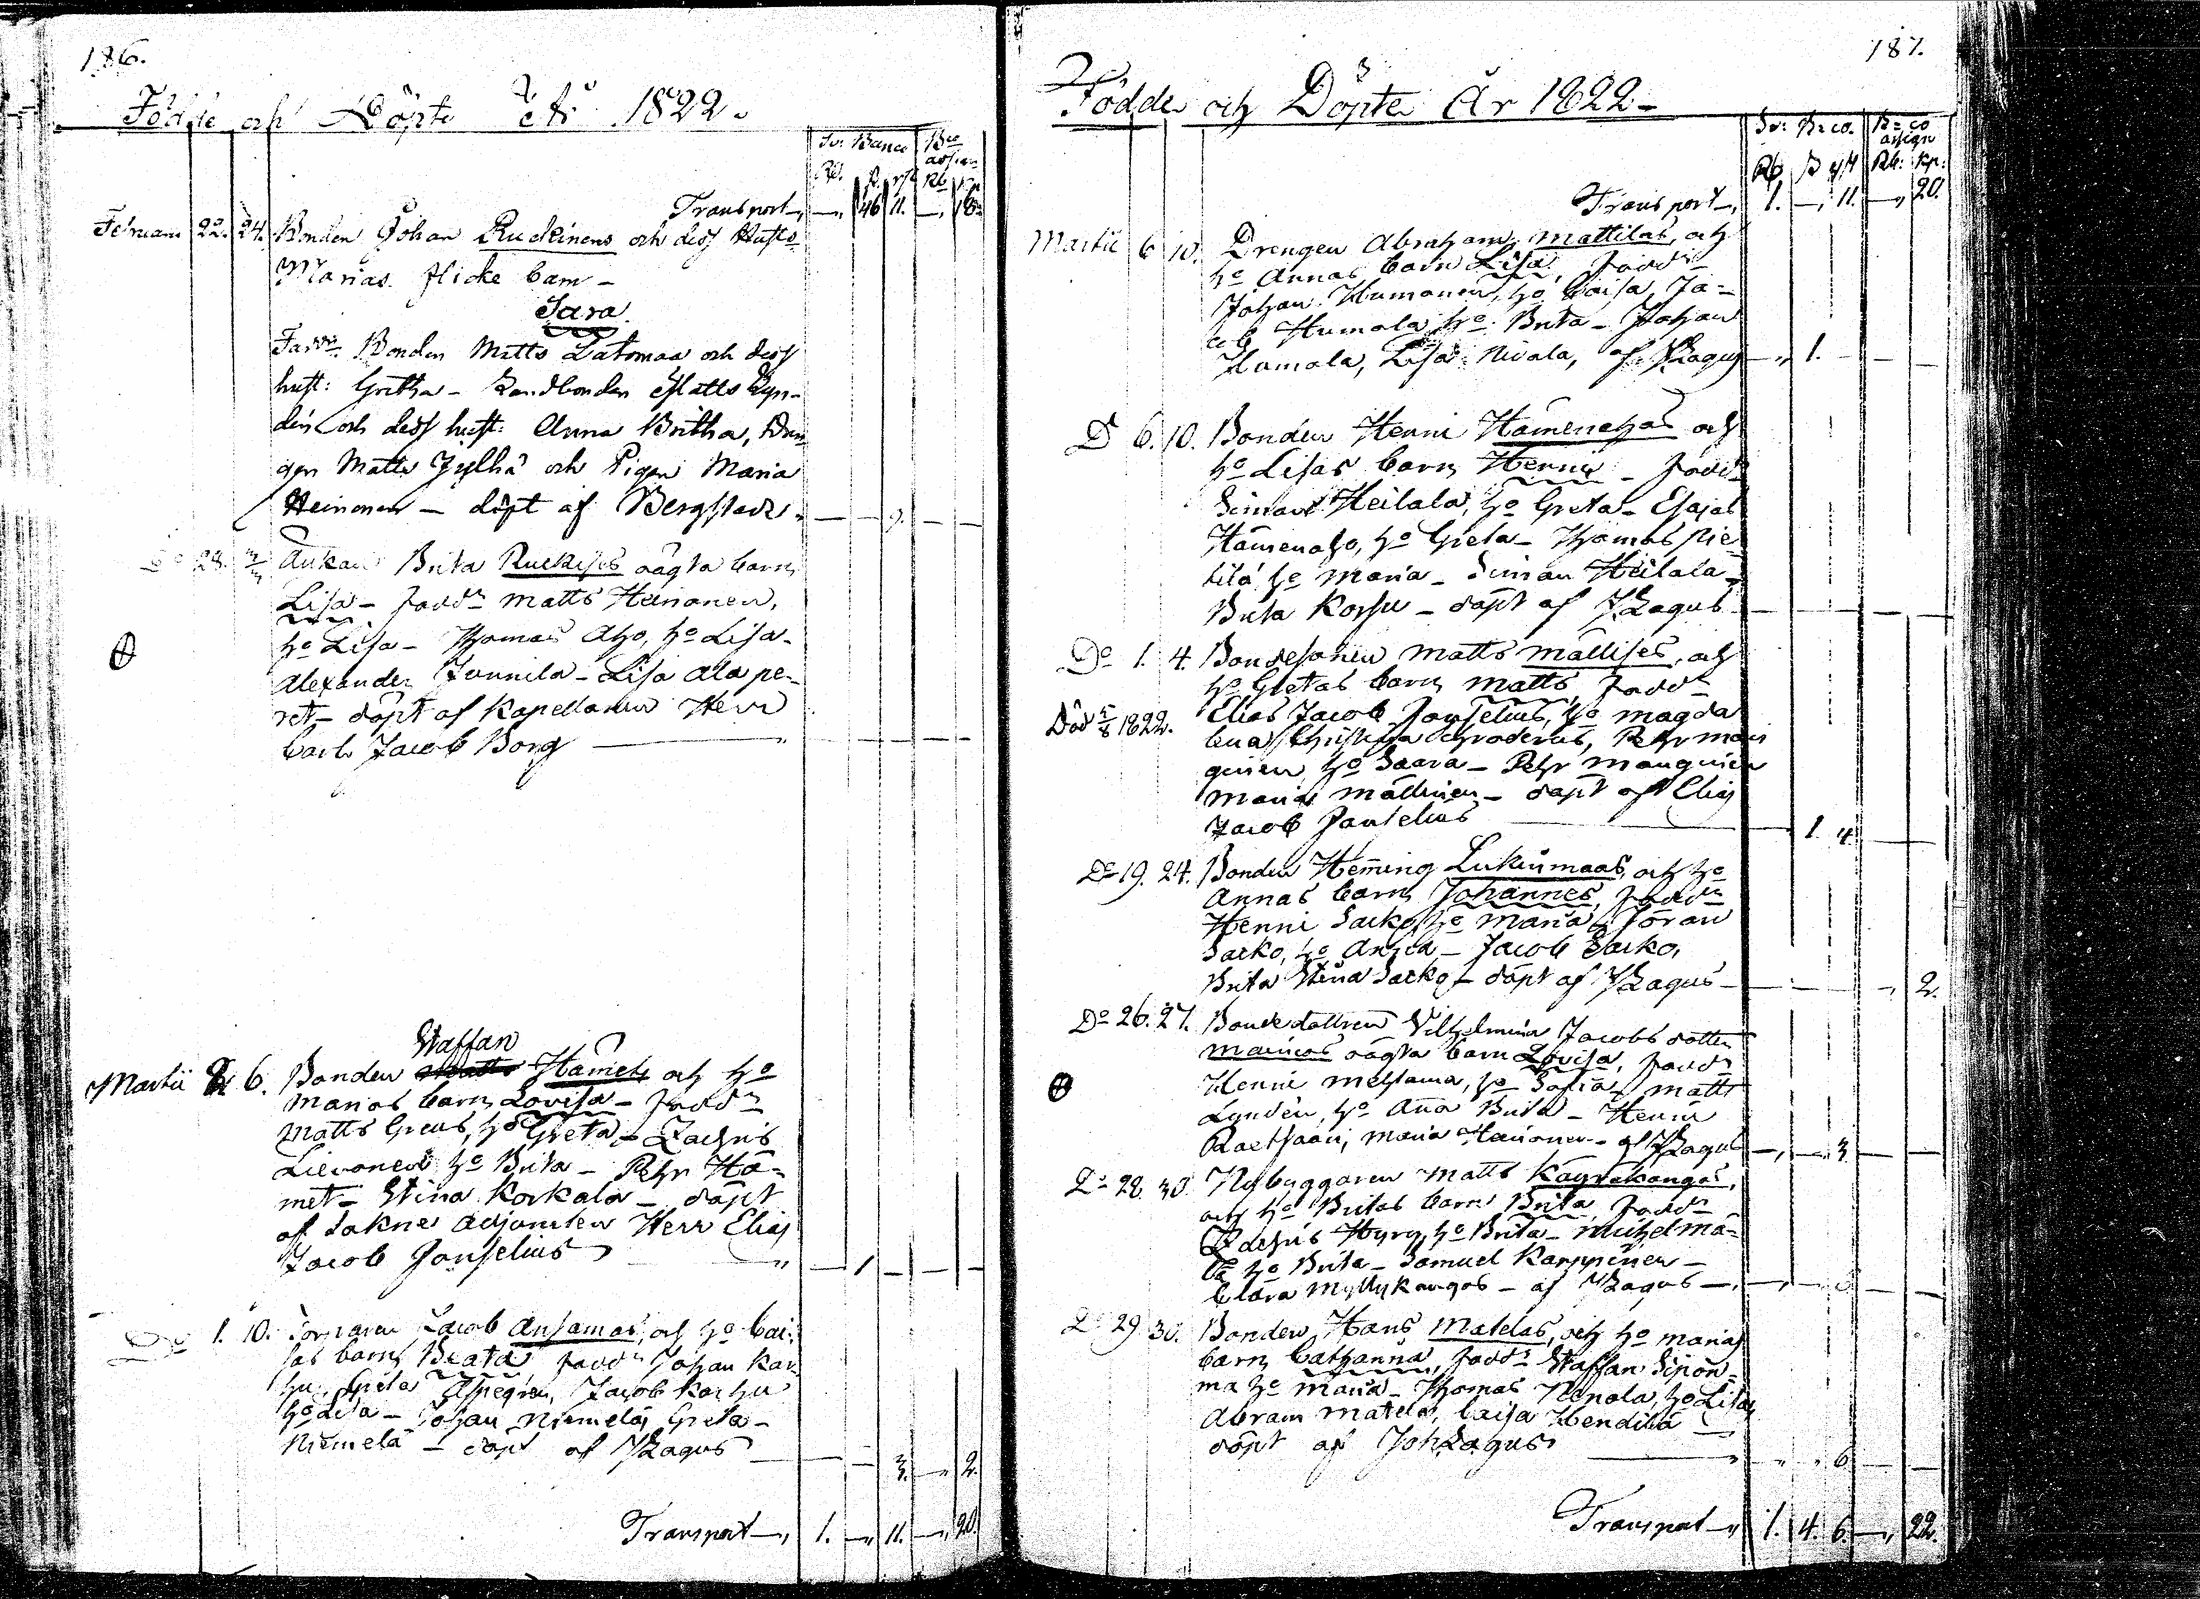 186.
Födde och Döpte År 1822.
Sv: Banco Bco assign
Transport —„ 46 11. —„ 18.
Februari 22. 24. Bonden Johan Ruckinens och dess Hust:
Marias flicke barn —
Sara
Faddr. Bonden Matts Latomaa och dess
hust: Gretha — Landbonden Matts Lyn-
dén och dess hust: Anna Britha, Dren-
gen Matts Jylhä och Pigan Maria
Heinonen — döpt af Bergstadi — — 9. — —
Do 28. 3/3 Enkan Brita Ruckises oägta barn
Lisa — Faddr Matts Hanonen,
ho Lisa — Thomas Aho, ho Lisa —
Alexander Junnila — Lisa Alape-
ret — döpt af Kapellanen Herr
Carl Jacob Borg
Staffan
Martii 2 6. Bonden Matts Hamets och ho
Marias barn Lovisa — Faddr
Matts Greus, ho Greta — Zachris
Lievonen ho Brita — Petr Hä-
met — Stina Korkala — döpt
af Sokne Adjuncten Herr Elias
Jacob Jonselius — 1 — — —
Do 1. 10. Torparen Jacob Ansamas, och ho Cai-
sas barn Beata Faddr Johan Kar-
hu, Greta Aspegren, Jacob Karhu
ho Lisa — Johan Niemelä, Greta
Niemelä — döpt af J Lagus — 3. — 2.
Transport —„ 1. —„ 11. —„ 20.
187.
Födde och Döpte År 1822 —
Sv: Bco. Bco assign
Rb: kp:
Transport —„ 1. —„ 11. —„ 20.
Martii 6 10. Drengen Abraham Mattilas, och
ho Annas barn Lisa, Faddr
Johan Humonen, ho Caisa, Ja-
cob Humala ho Brita — Johan
Humala, Lisa Nivala, af J Lagus —„ 1. — — —
Do 6. 10. Bonden Henric Hämenahos och
ho Lisas barn Henric — Faddr
Simon Heilala, ho Greta — Esaias
Hämenaho, ho Greta — Thomas Pie-
tilä ho Maria — Simon Heilala —
Brita Korsu — döpt af J Lagus
Do 1. 4. Bondesonen Matts Mällises, och
ho Gretas barn Matts, Faddr
Död 5/8 1822. Elias Jacob Jonselius, ho Magda
lena Christina Groderus, Petr Man
guinen, ho Saara — Petr Manguinen
Maria Mällinen — döpt af Elias
Jacob Jonselius — 1. 4. — —
Do 19. 24. Bonden Hemming Lukinmaas, och ho
Annas barn Johannes, Faddr
Henric Sarko, ho Maria, Jöran
Sarko, ho Anna — Jacob Sarko,
Brita Stina Sarko — döpt af J Lagus — — — — 2.
Do 26. 27. Bondedottren Vilhelmina Jacobs dotter
Maunos oägta barn Lovisa, Faddr
Henric Metsama, ho Sofia, Matts
Lyndén, ho Anna Brita — Henric
Raetsaari, Maria Hanonen — af J Lagus —„ — 3. — —
Do 28. 30. Nybyggaren Matts Käyräkangas,
och ho Britas barn Brita, Faddr
Zachris Hyry, ho Brita — Michel Mä-
lä ho Brita — Samuel Karppinen —
Clara Myllykangas — af J Lagus
Do 29 30. Bonden Hans Matelas, och ho Marias
barn Catharina, Faddr Staffan Sipon-
ma ho Maria — Thomas Nenola, ho Lisa
Abram Matela, Caisa Hendilä
döpt af Joh Lagus — „ „ 6 — —
Transport —„ 1. 4. 6. —„ 22.